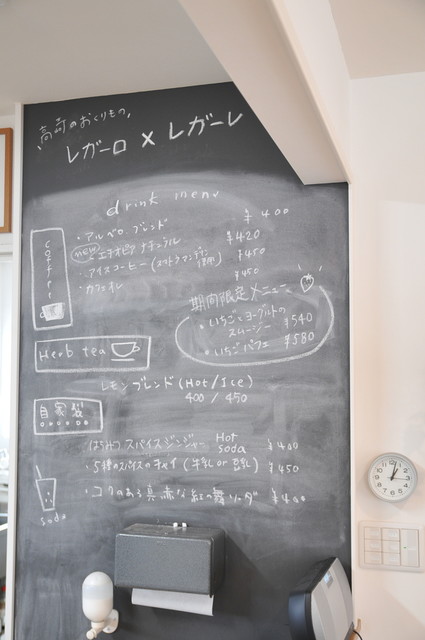 高荷のおくりもの
レガーロ × レガーレ
drink menu
coffee
・アルベロ ブレンド ¥400
new エチオピア ナチュラル ¥420
・アイスコーヒー (スマトラマンデリン使用) ¥450
・カフェオレ ¥450
期間限定メニュー
・いちごとヨーグルトのスムージー ¥540
・いちごパフェ ¥580
Herb tea
レモンブレンド (Hot/Ice)
400 / 450
自家製
はちみつ スパイスジンジャー Hot soda ¥400
・5種のスパイスのチャイ (牛乳 or 豆乳) ¥450
soda
・コクのある真赤な紅の舞ソーダ ¥400